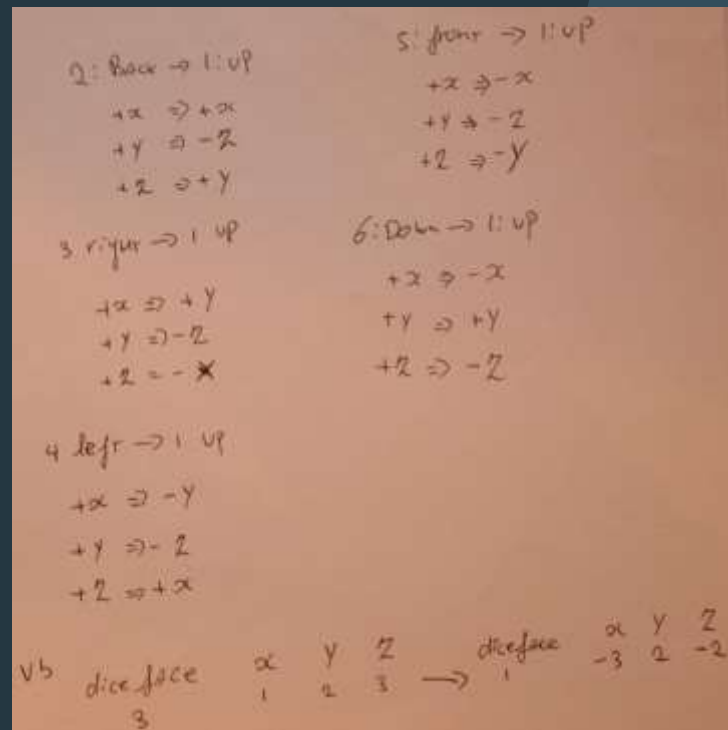 2: Back → 1: up
+x ⇒ +x
+y ⇒ -z
+z ⇒ +y
3 right → 1 up
+x ⇒ +y
+y ⇒ -z
+z = -x
4 left → 1 up
+x ⇒ -y
+y ⇒ -z
+z ⇒ +x
5: front → 1: up
+x ⇒ -x
+y ⇒ -z
+z ⇒ -y
6: Down → 1: up
+x ⇒ -x
+y ⇒ +y
+z ⇒ -z
vb dice face x y z → dice face x y z
3 1 2 3 1 -3 2 -2